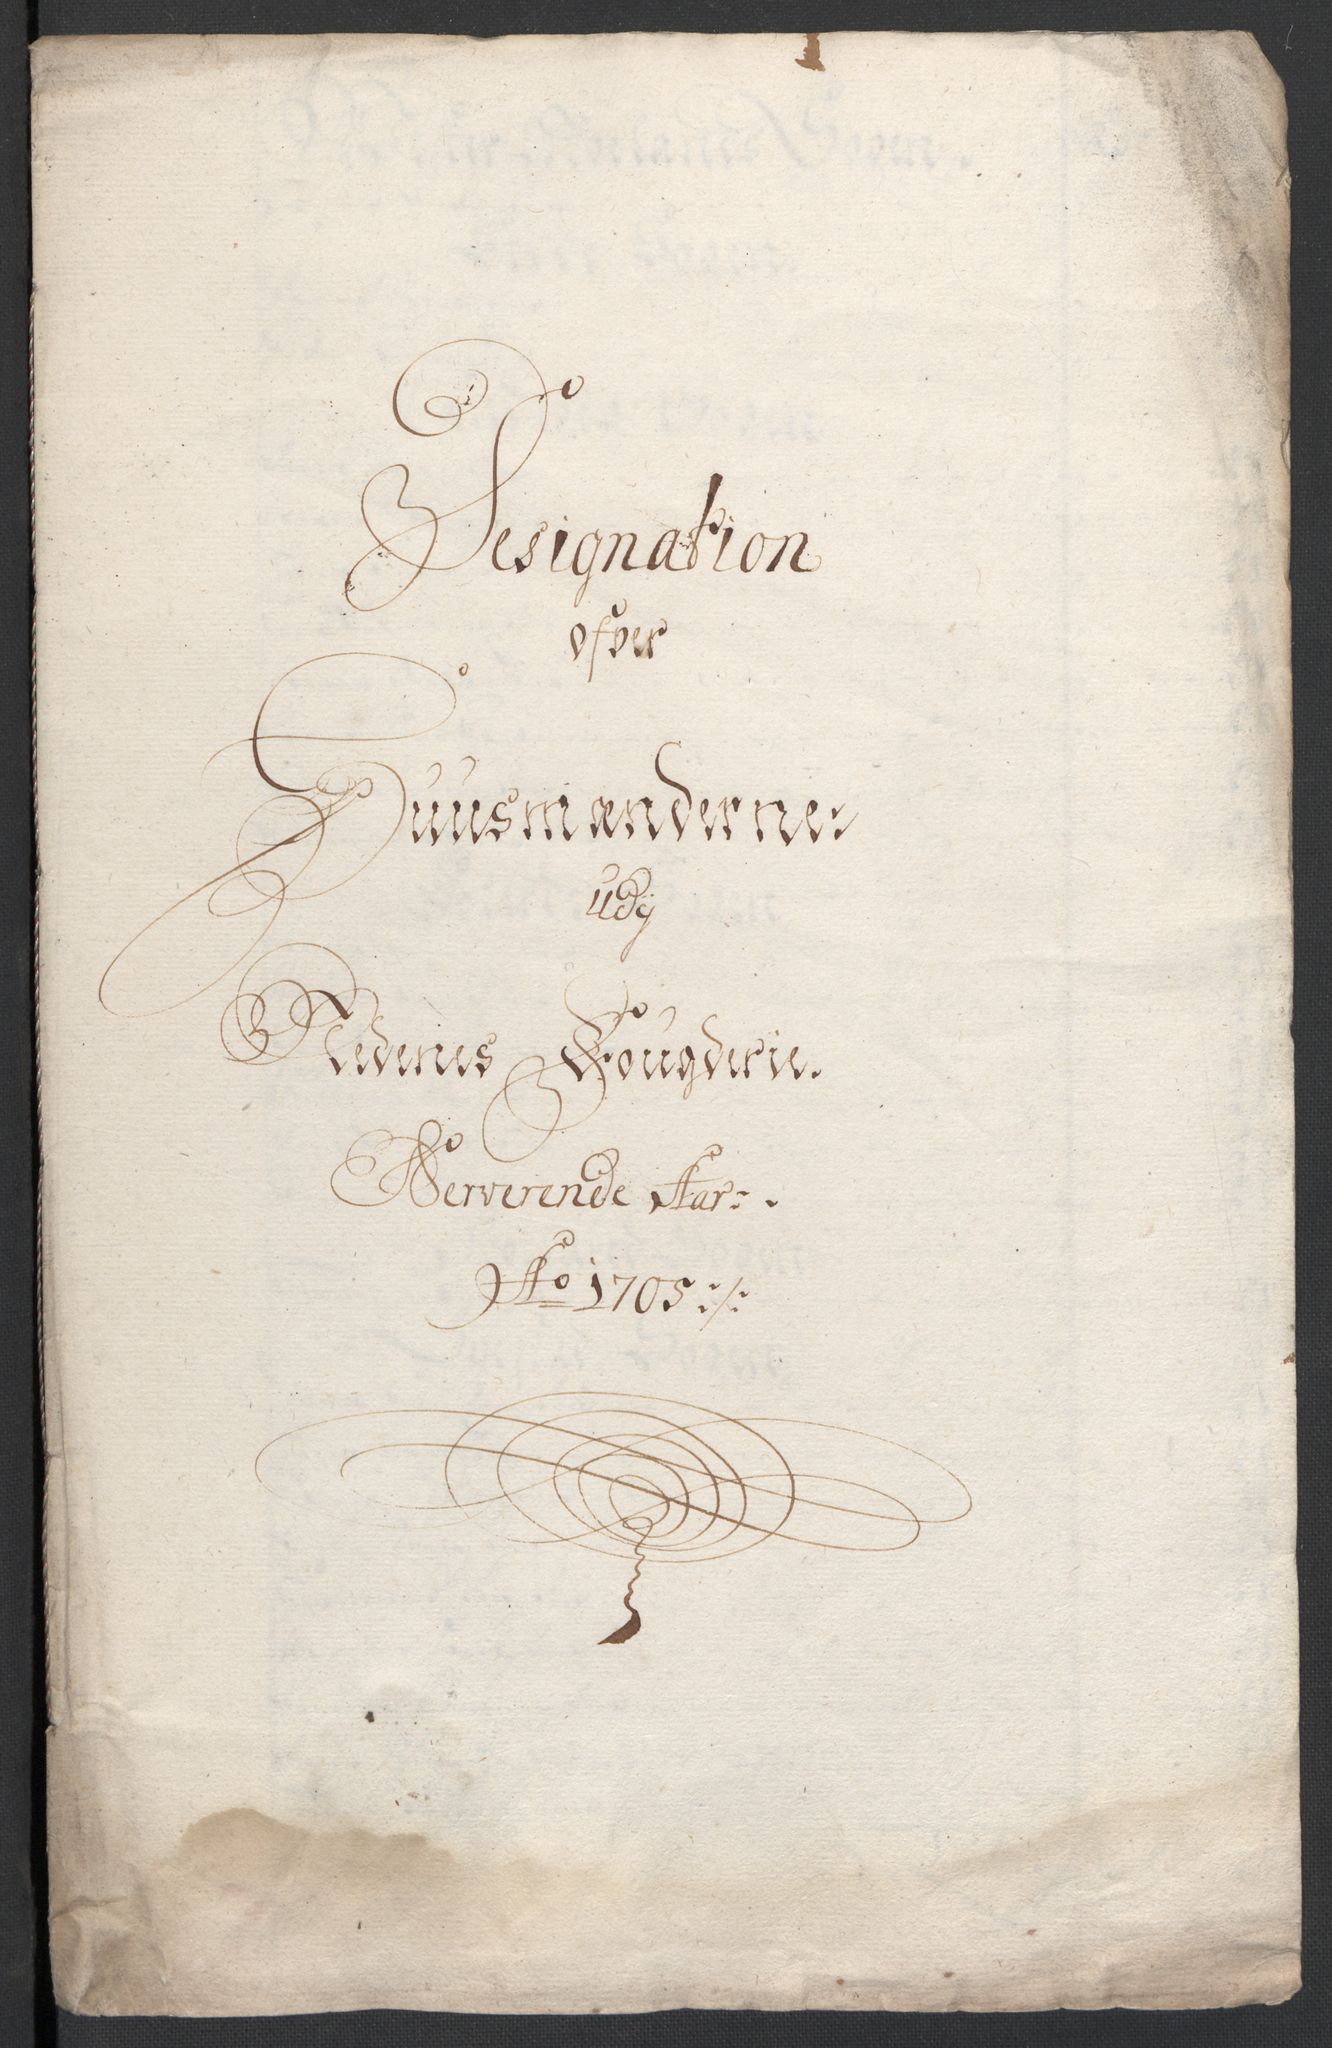 Designation
ofver
Huusmænderne:
udÿ
Nedenes Fougderie.
Nerverende Aar:.
Ao 1705:/: